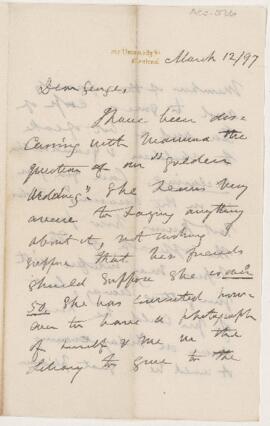 Acc-526
University St
Montreal
March 12/97
Dear George,
I have been dis-
cussing with Mamma the
question of our "Golden
Wedding". She seems very
averse to saying anything
about it, not wishing I
suppose that her friends
should suppose she is over
50. She has consented how-
ever to have a photograph
of herself & me in the
library to give to the